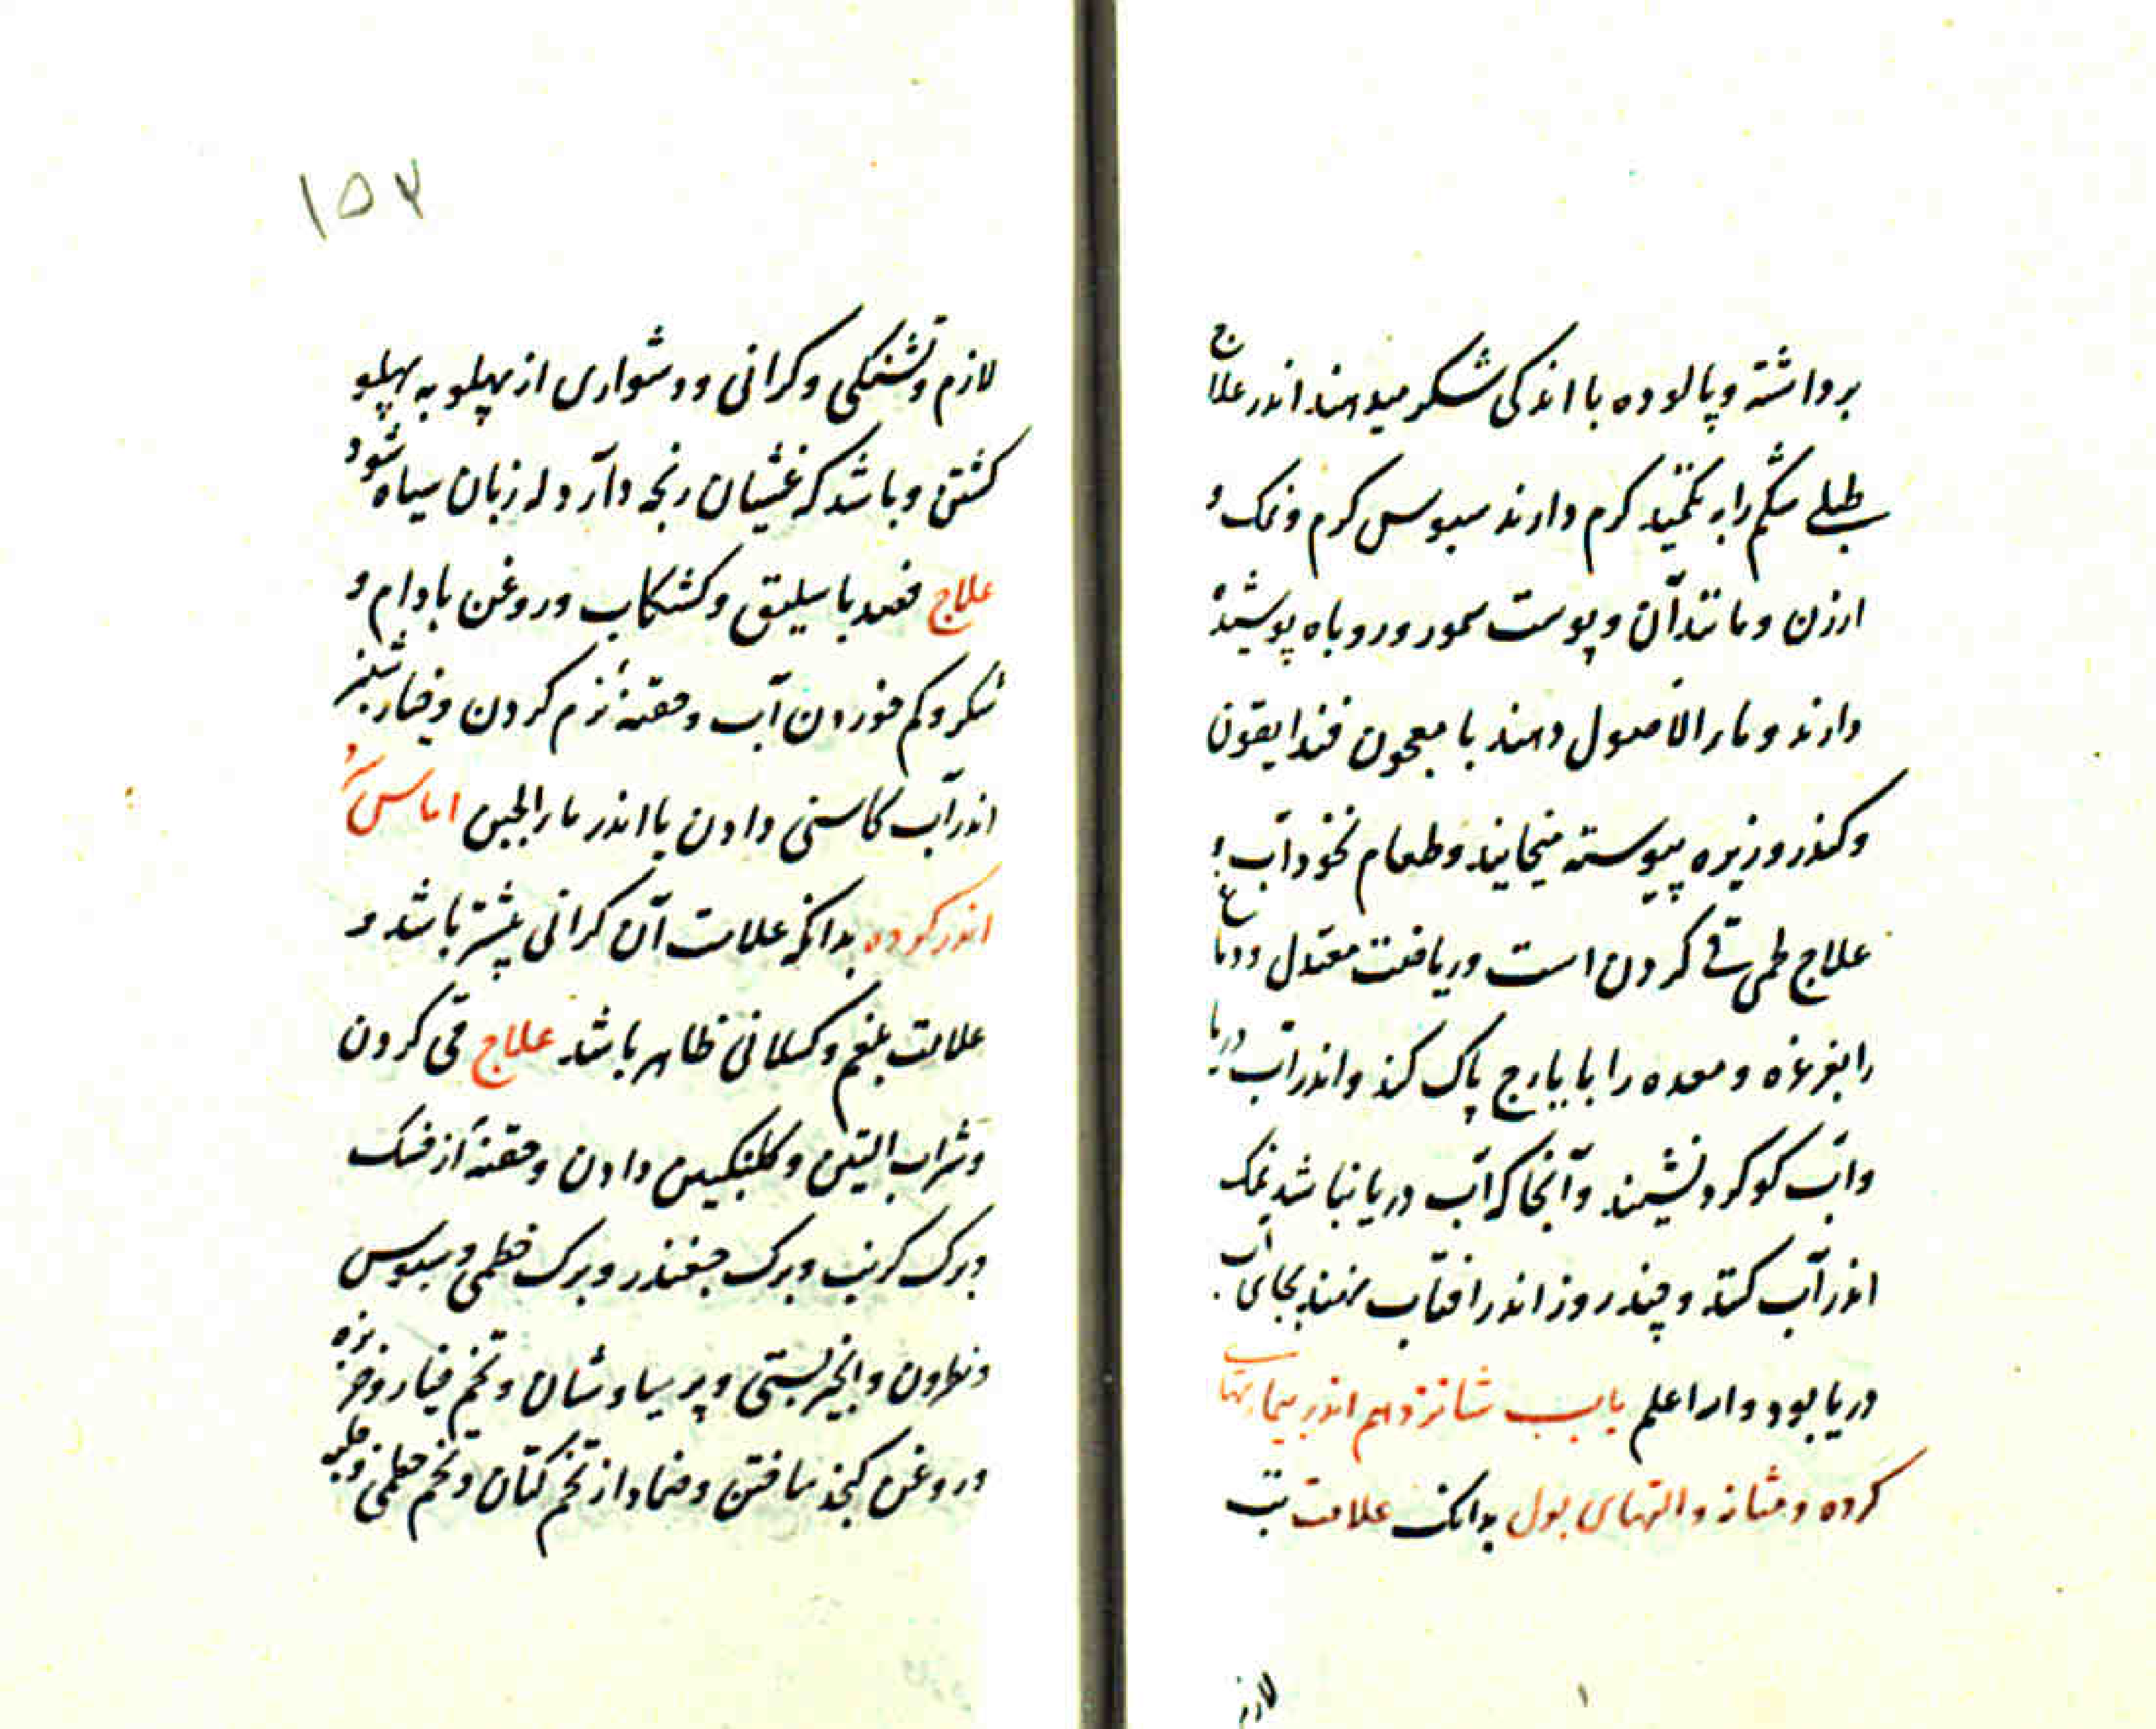 برداشته و پالوده با اندکی شکر میدهند اندر علاج
طبلی شکم را به تکمید کرم دارند سبوس کرم و نمک و
ارزن و مانند آن و پوست سمور و روباه پوشیده
دارند و ماء الاصول دهند با معجون فندایقون
و کندر و زیره پیوسته میخایند و طعام نخود آب و
علاج طمی قی کردن است و ریاضت معتدل و دماغ
را بغرغره و معده را بایارج پاک کند و اندر آب دریا
و آب کوکرد نشیند و آنجا که آب دریا نباشد نمک
اندر آب کنند و چند روز اندر افتاب نهند بجای آب
دریا بود والله اعلم باب شانزدهم اندر بیماریهای
کرده و مثانه و التهای بول بدانک علامت تب
لازم
۱
۱۵۳
لازم و تشنکی و کرانی و دشواری از پهلو به پهلو
کشتن و باشد که غشیان رنجه دارد و زبان سیاه شود
علاج فصد باسلیق و کشکاب و روغن بادام و
شکر و کم خوردن آب و حقنهٔ نرم کردن و خیار شنبر
اندر آب کاسنی دادن یا اندر ماء الجبن اماس سرد
اندر کرده بدانکه علامت آن کرانی بیشتر باشد و
علامت بلغم و کسلانی ظاهر باشد علاج قی کردن
و شراب التین و کلنکبین دادن و حقنهٔ از خسک
و برک کرنب و برک جغندر و برک خطمی و سبوس
و نطرون و انجیر بستی و پرسیاوشان و تخم خیار و خربزه
و روغن کنجد ساختن و ضماد از تخم کتان و تخم خطمی و حلبه